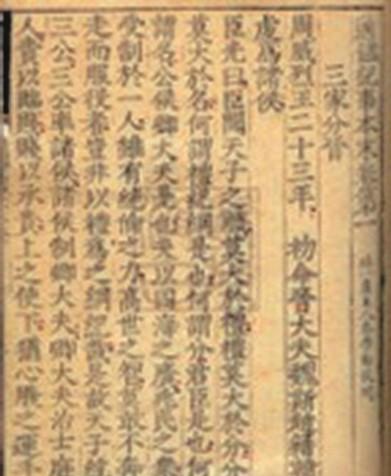 通鑑紀事本末卷第一
三家分晉
周威烈王二十三年 初命晉大夫魏斯趙籍
虔為諸侯
臣光曰臣聞天子之職莫大於禮禮莫大於分分
莫大於名何謂禮紀綱是也何謂分君臣是也何
謂名公侯卿大夫是也夫以四海之廣兆民之衆
受制於一人雖有絕倫之力高世之智莫敢不奔
走而服役者豈非以禮為之綱紀哉是故天子統
三公三公率諸侯諸侯制卿大夫卿大夫治士庶
人貴以臨賤賤以承貴上之使下猶心腹之運手